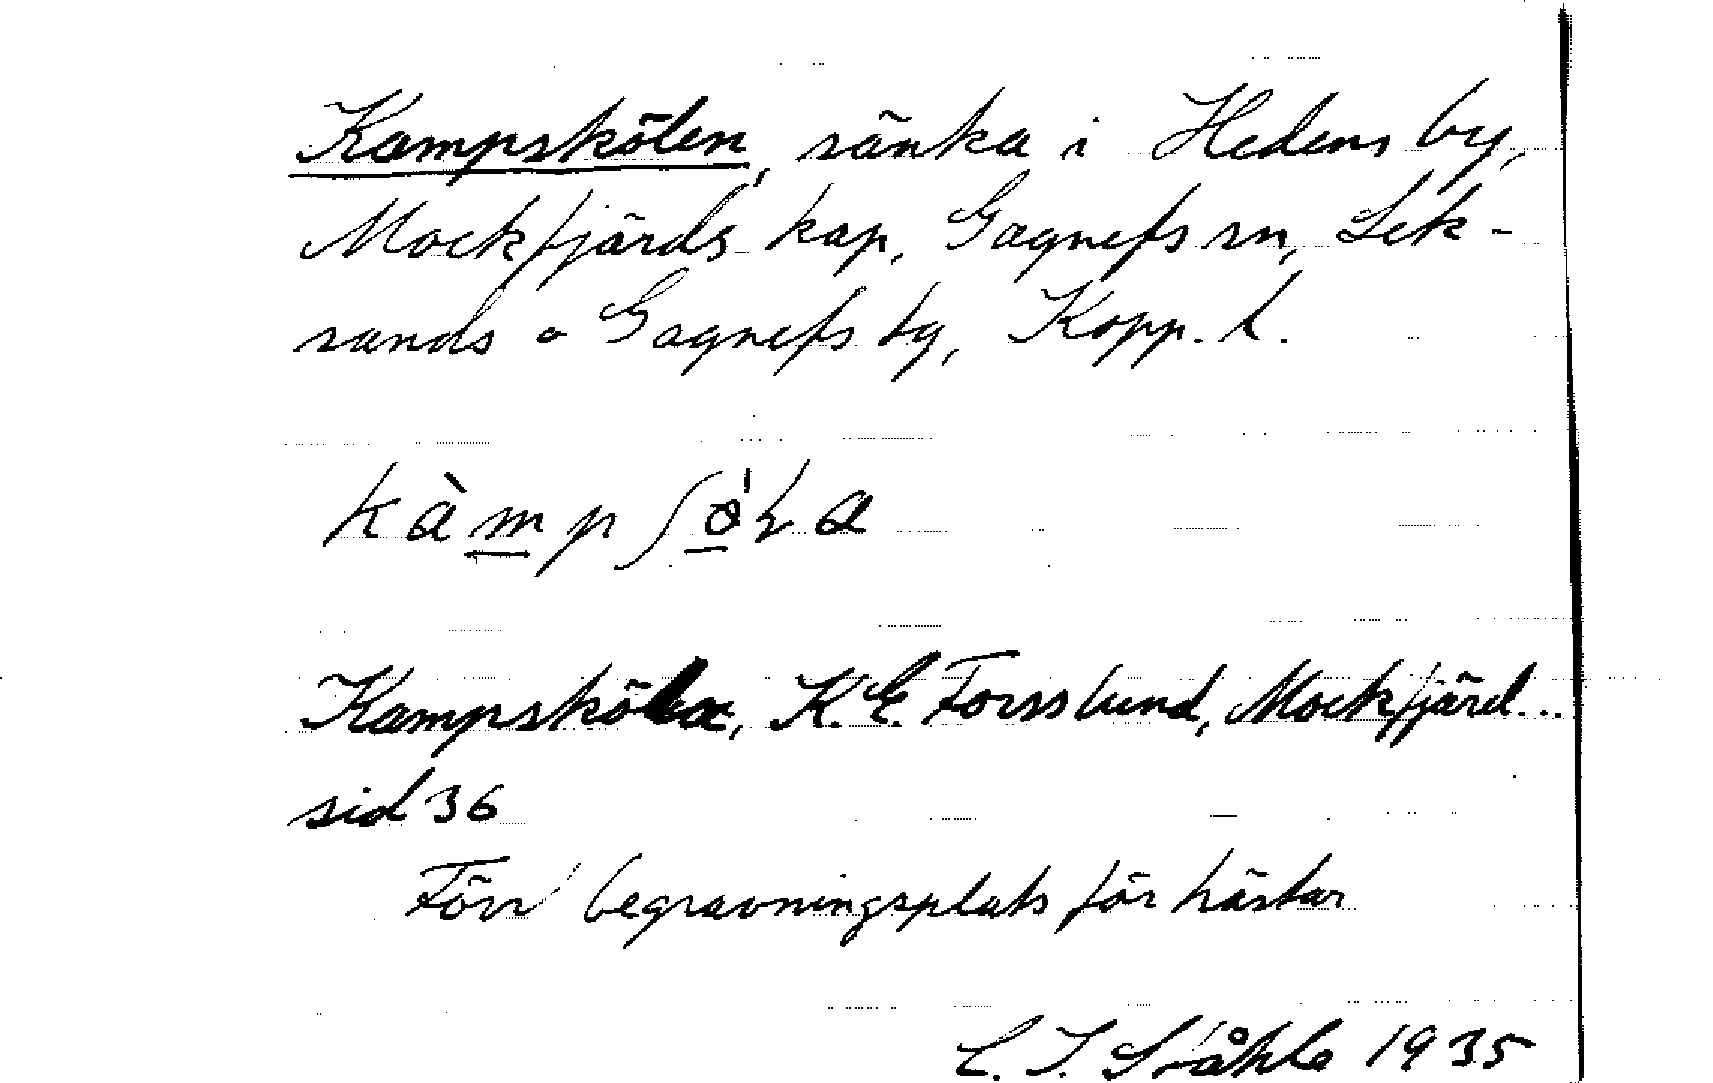 Kampskölen, sänka i Hedens by,
Mockfjärds kap, Gagnefs sn, Lek-
sands o Gagnefs tg, Kopp. l.
Kampsköla, K. E. Forsslund, Mockfjärd...
sid 36
Förr begravningsplats för hästar
C. I. Ståhle 1935